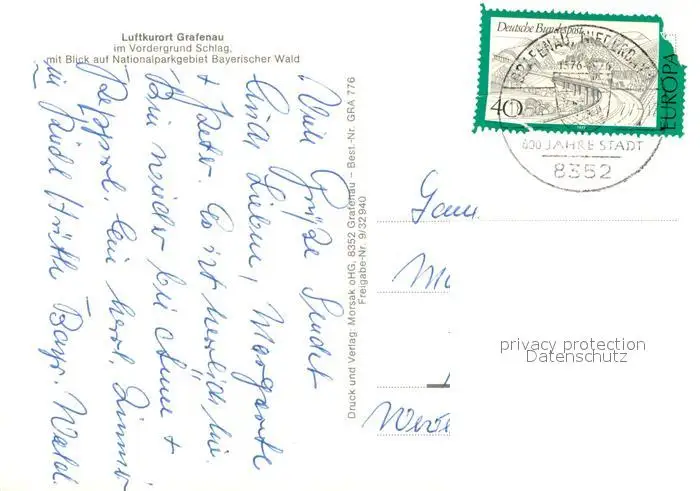 Luftkurort Grafenau
im Vordergrund Schlag,
mit Blick auf Nationalparkgebiet Bayerischer Wald
Viele Grüße sendet
Euch Lieben, Margarete
+ Peter. Es ist herrlich hier.
Bin wieder bei +
herrl. Zimmer
in Bayr. Wald.
Druck und Verlag: Morsak oHG, 8352 Grafenau – Best.-Nr. GRA 776
Freigabe-Nr. 9/32 940
Deutsche Bundespost
40
EUROPA
GRAFENAU,
1376-1976
600 JAHRE STADT
8352
Fam.
privacy protection
Datenschutz